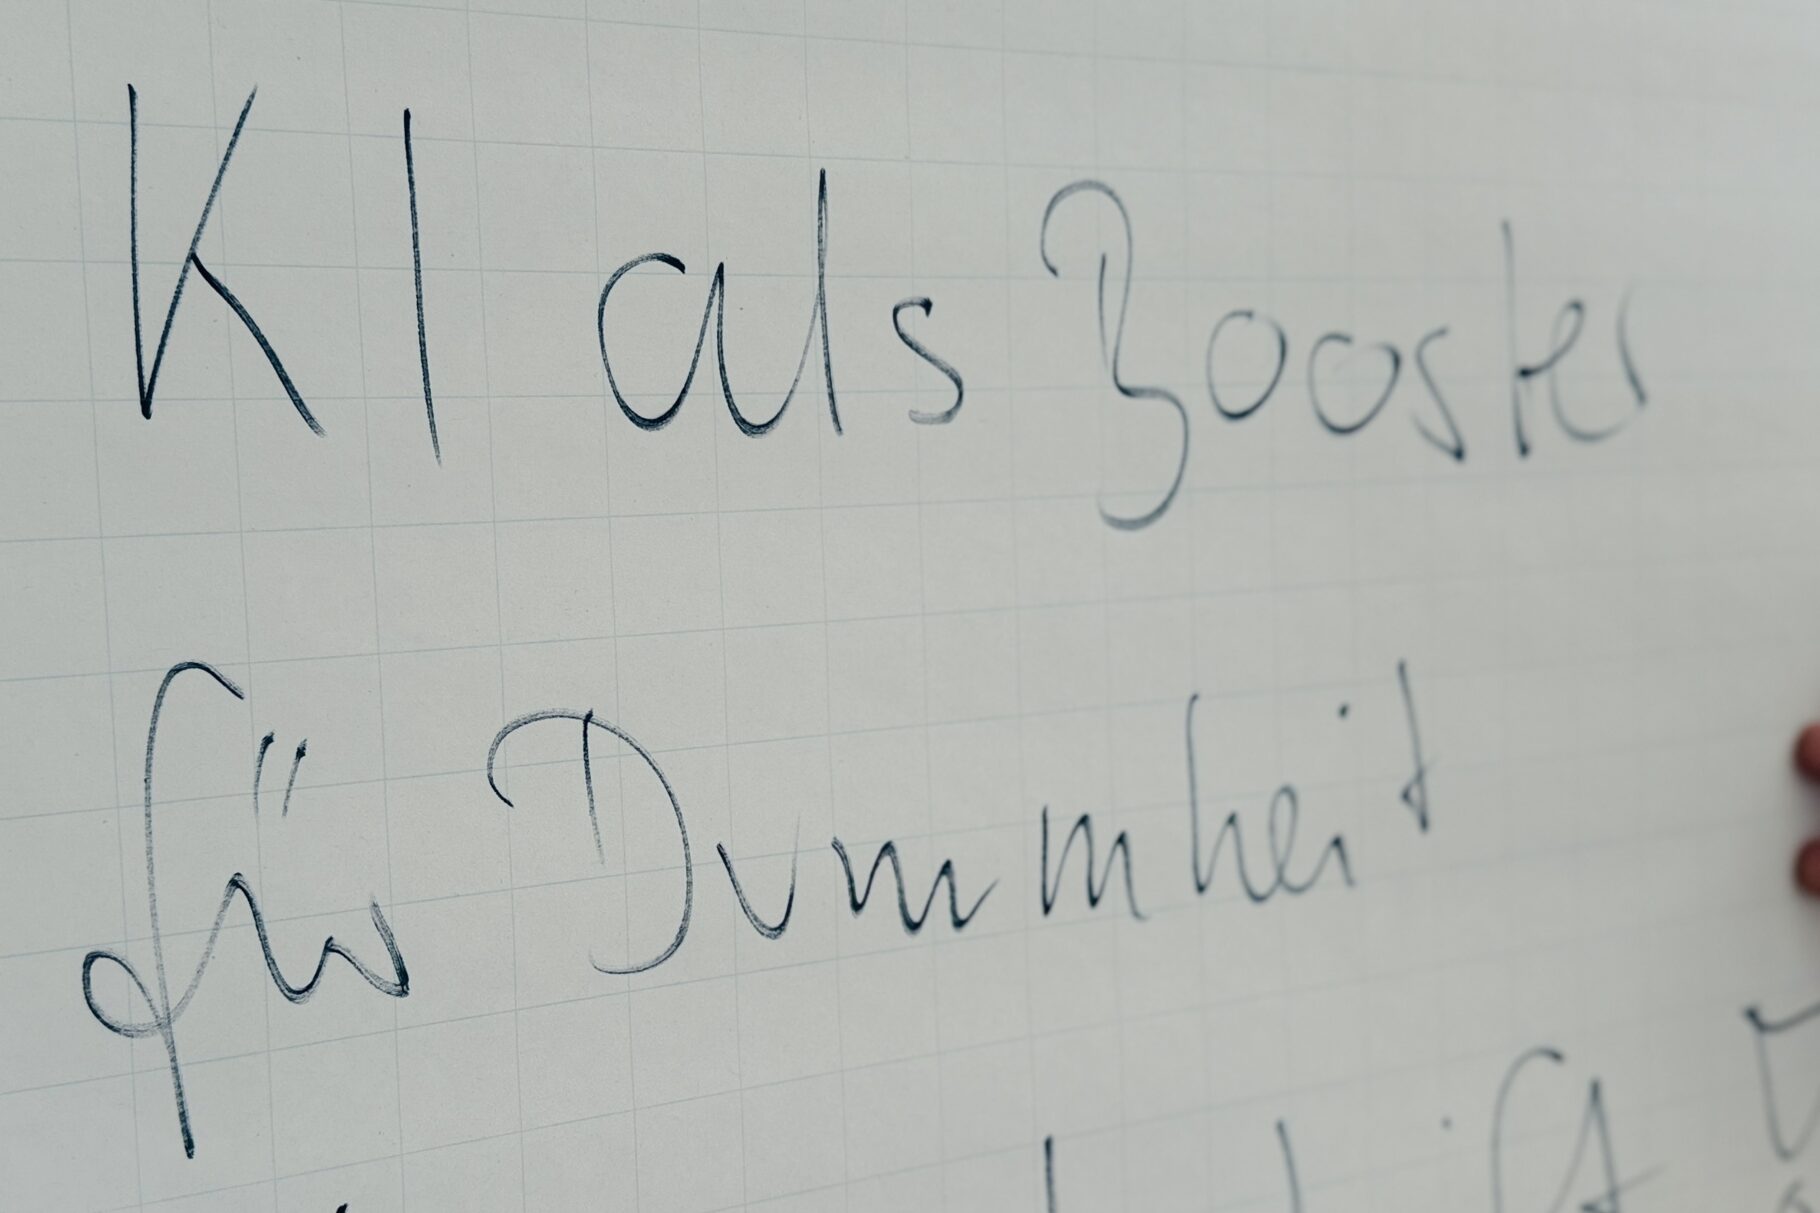 KI als Booster
für Dummheit